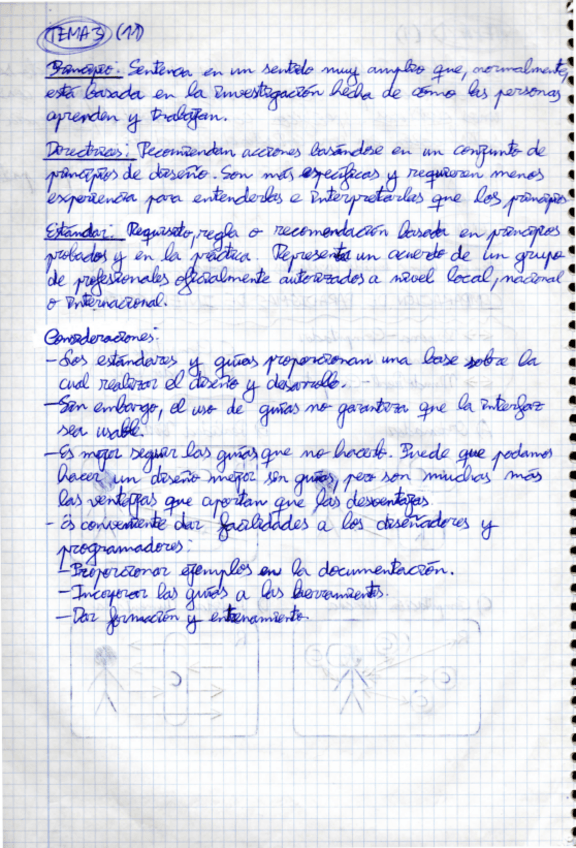 TEMA 3 (11)
Principio: Sentencia en un sentido muy amplio que, normalmente,
está basada en la investigación hecha de cómo las personas
aprenden y trabajan.
Directrices: Recomiendan acciones basándose en un conjunto de
principios de diseño. Son más específicas y requieren menos
experiencia para entenderlas e interpretarlas que los principios.
Estándar: Requisito, regla o recomendación basada en principios
probados y en la práctica. Representa un acuerdo de un grupo
de profesionales oficialmente autorizados a nivel local, nacional
o internacional.
Consideraciones:
- Los estándares y guías proporcionan una base sobre la
cual realizar el diseño y desarrollo.
- Sin embargo, el uso de guías no garantiza que la interfaz
sea usable.
- Es mejor seguir las guías que no hacerlo. Puede que podamos
hacer un diseño mejor sin guías, pero son muchas más
las ventajas que aportan que las desventajas
- Es conveniente dar facilidades a los diseñadores y
programadores:
- Proporcionar ejemplos en la documentación.
- Incorporar las guías a las herramientas.
- Dar formación y entrenamiento.